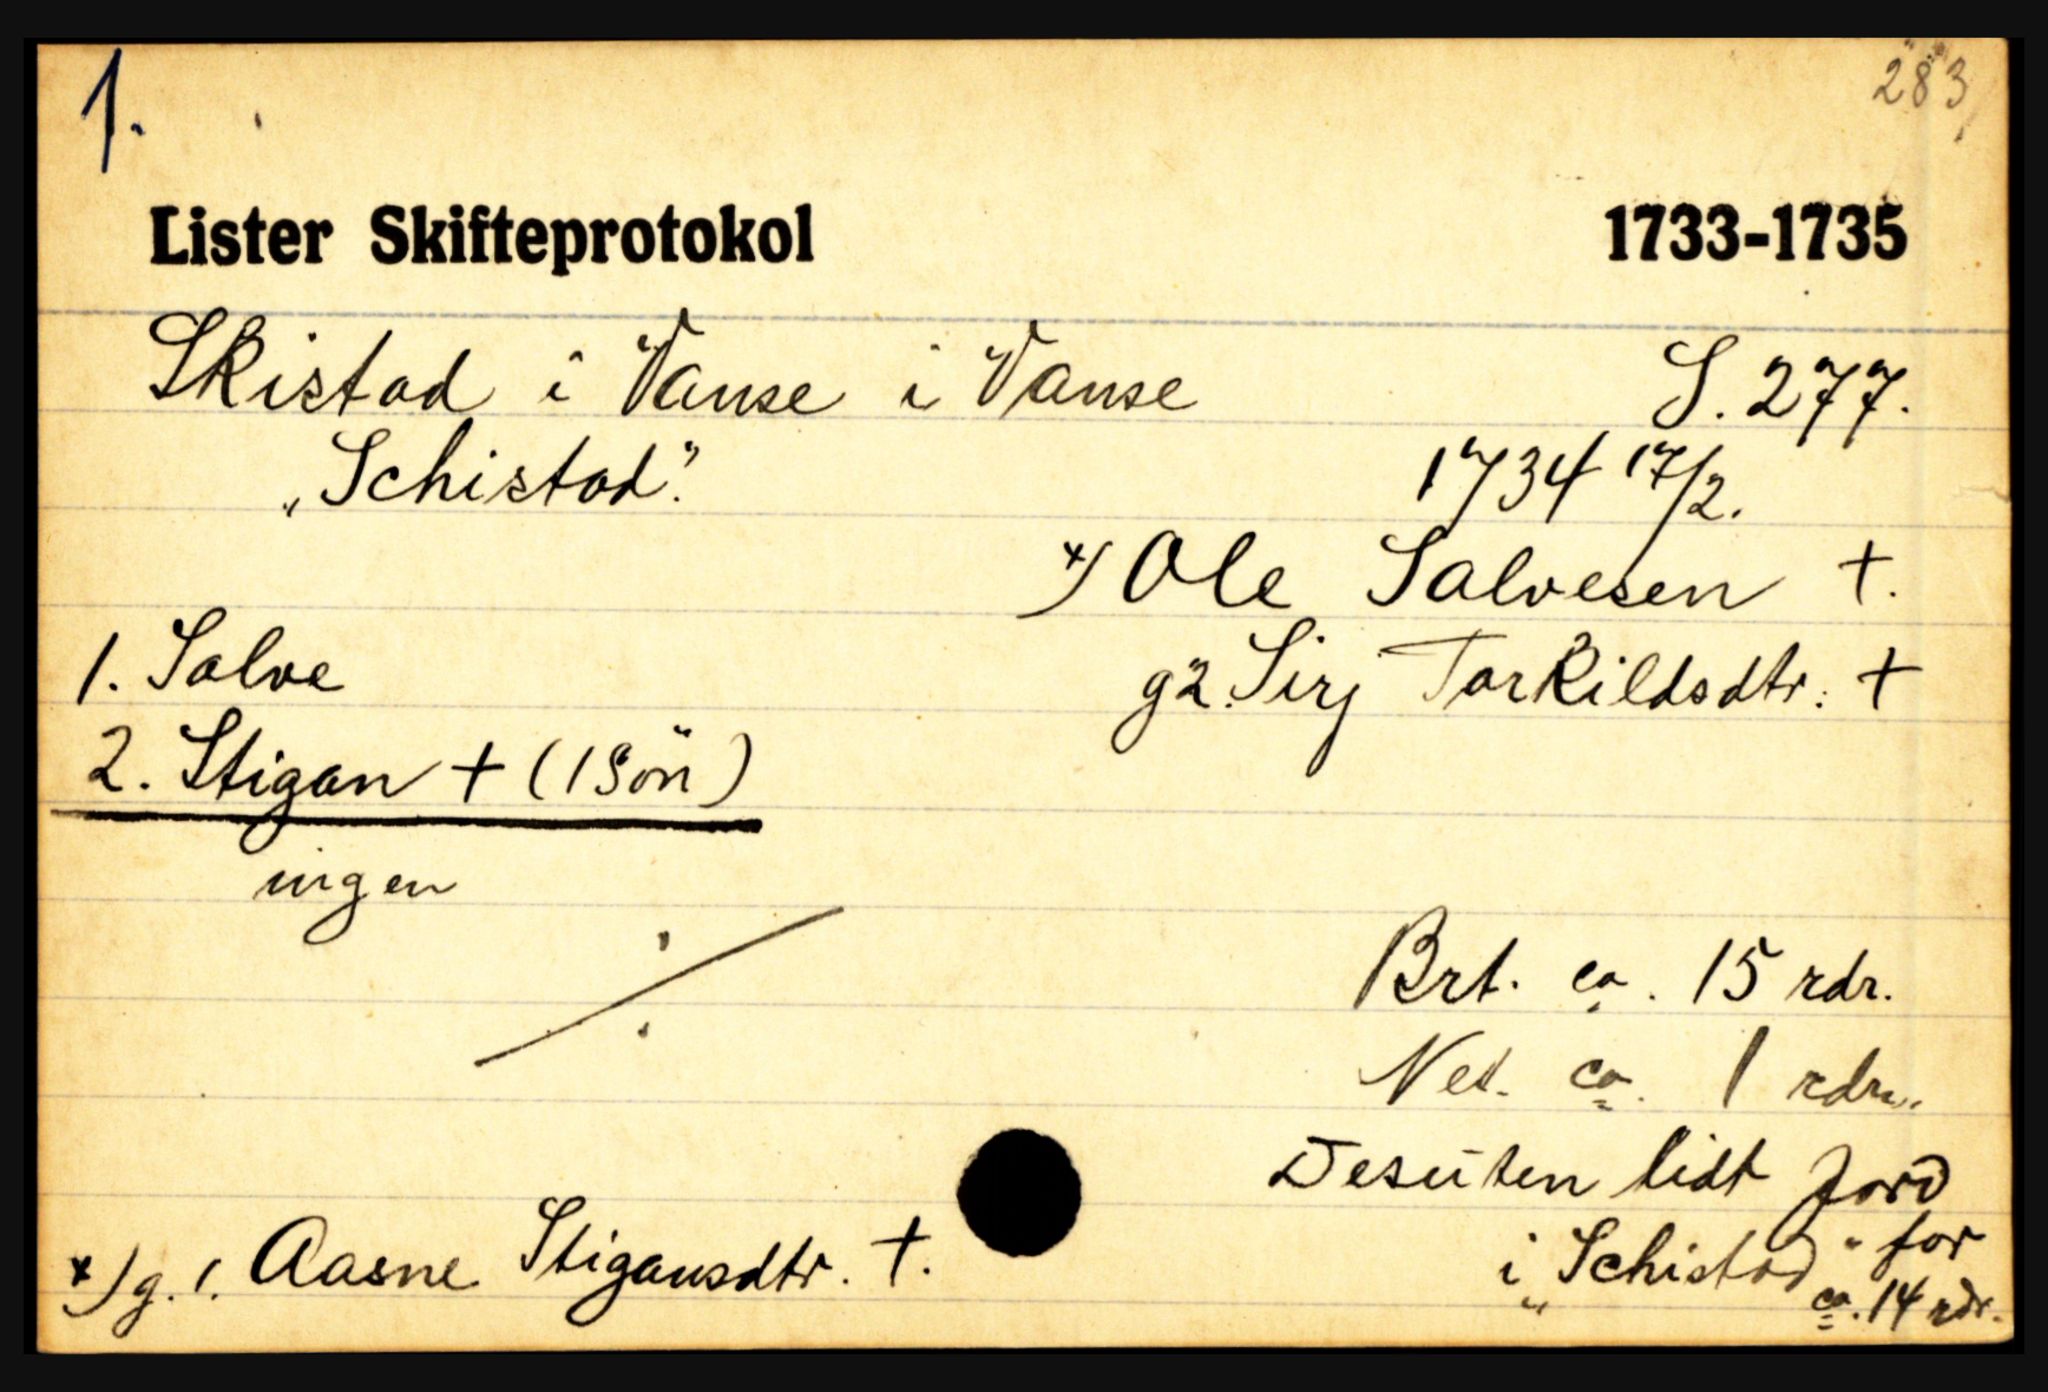 1.
283
Lister Skifteprotokol 1733-1735
Skistad i Vanse i Vanse S. 277.
„Schistad". 1734 17/2.
x) Ole Salvesen +.
1. Salve g2. Sirj Torkildsdtr. +
2. Stigan + (1 Sön)
ingen
Brt. ca. 15 rdr.
Net. ca. 1 rdr.
Desuten lidt Jord
i „Schistad" for
ca. 14 rdr.
x) g. 1. Aasne Stigansdtr. +.